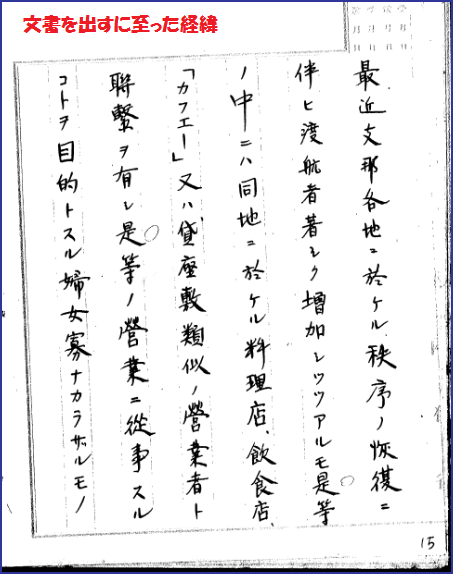 文書を出すに至った経緯
最近支那各地ニ於ケル秩序ノ恢復ニ
伴ヒ渡航者著シク増加シツツアルモ是等
ノ中ニハ同地ニ於ケル料理店、飲食店、
「カフエー」又ハ貸座敷類似ノ営業者ト
聯繋ヲ有シ是等ノ営業ニ従事スル
コトヲ目的トスル婦女寡ナカラザルモノ
15